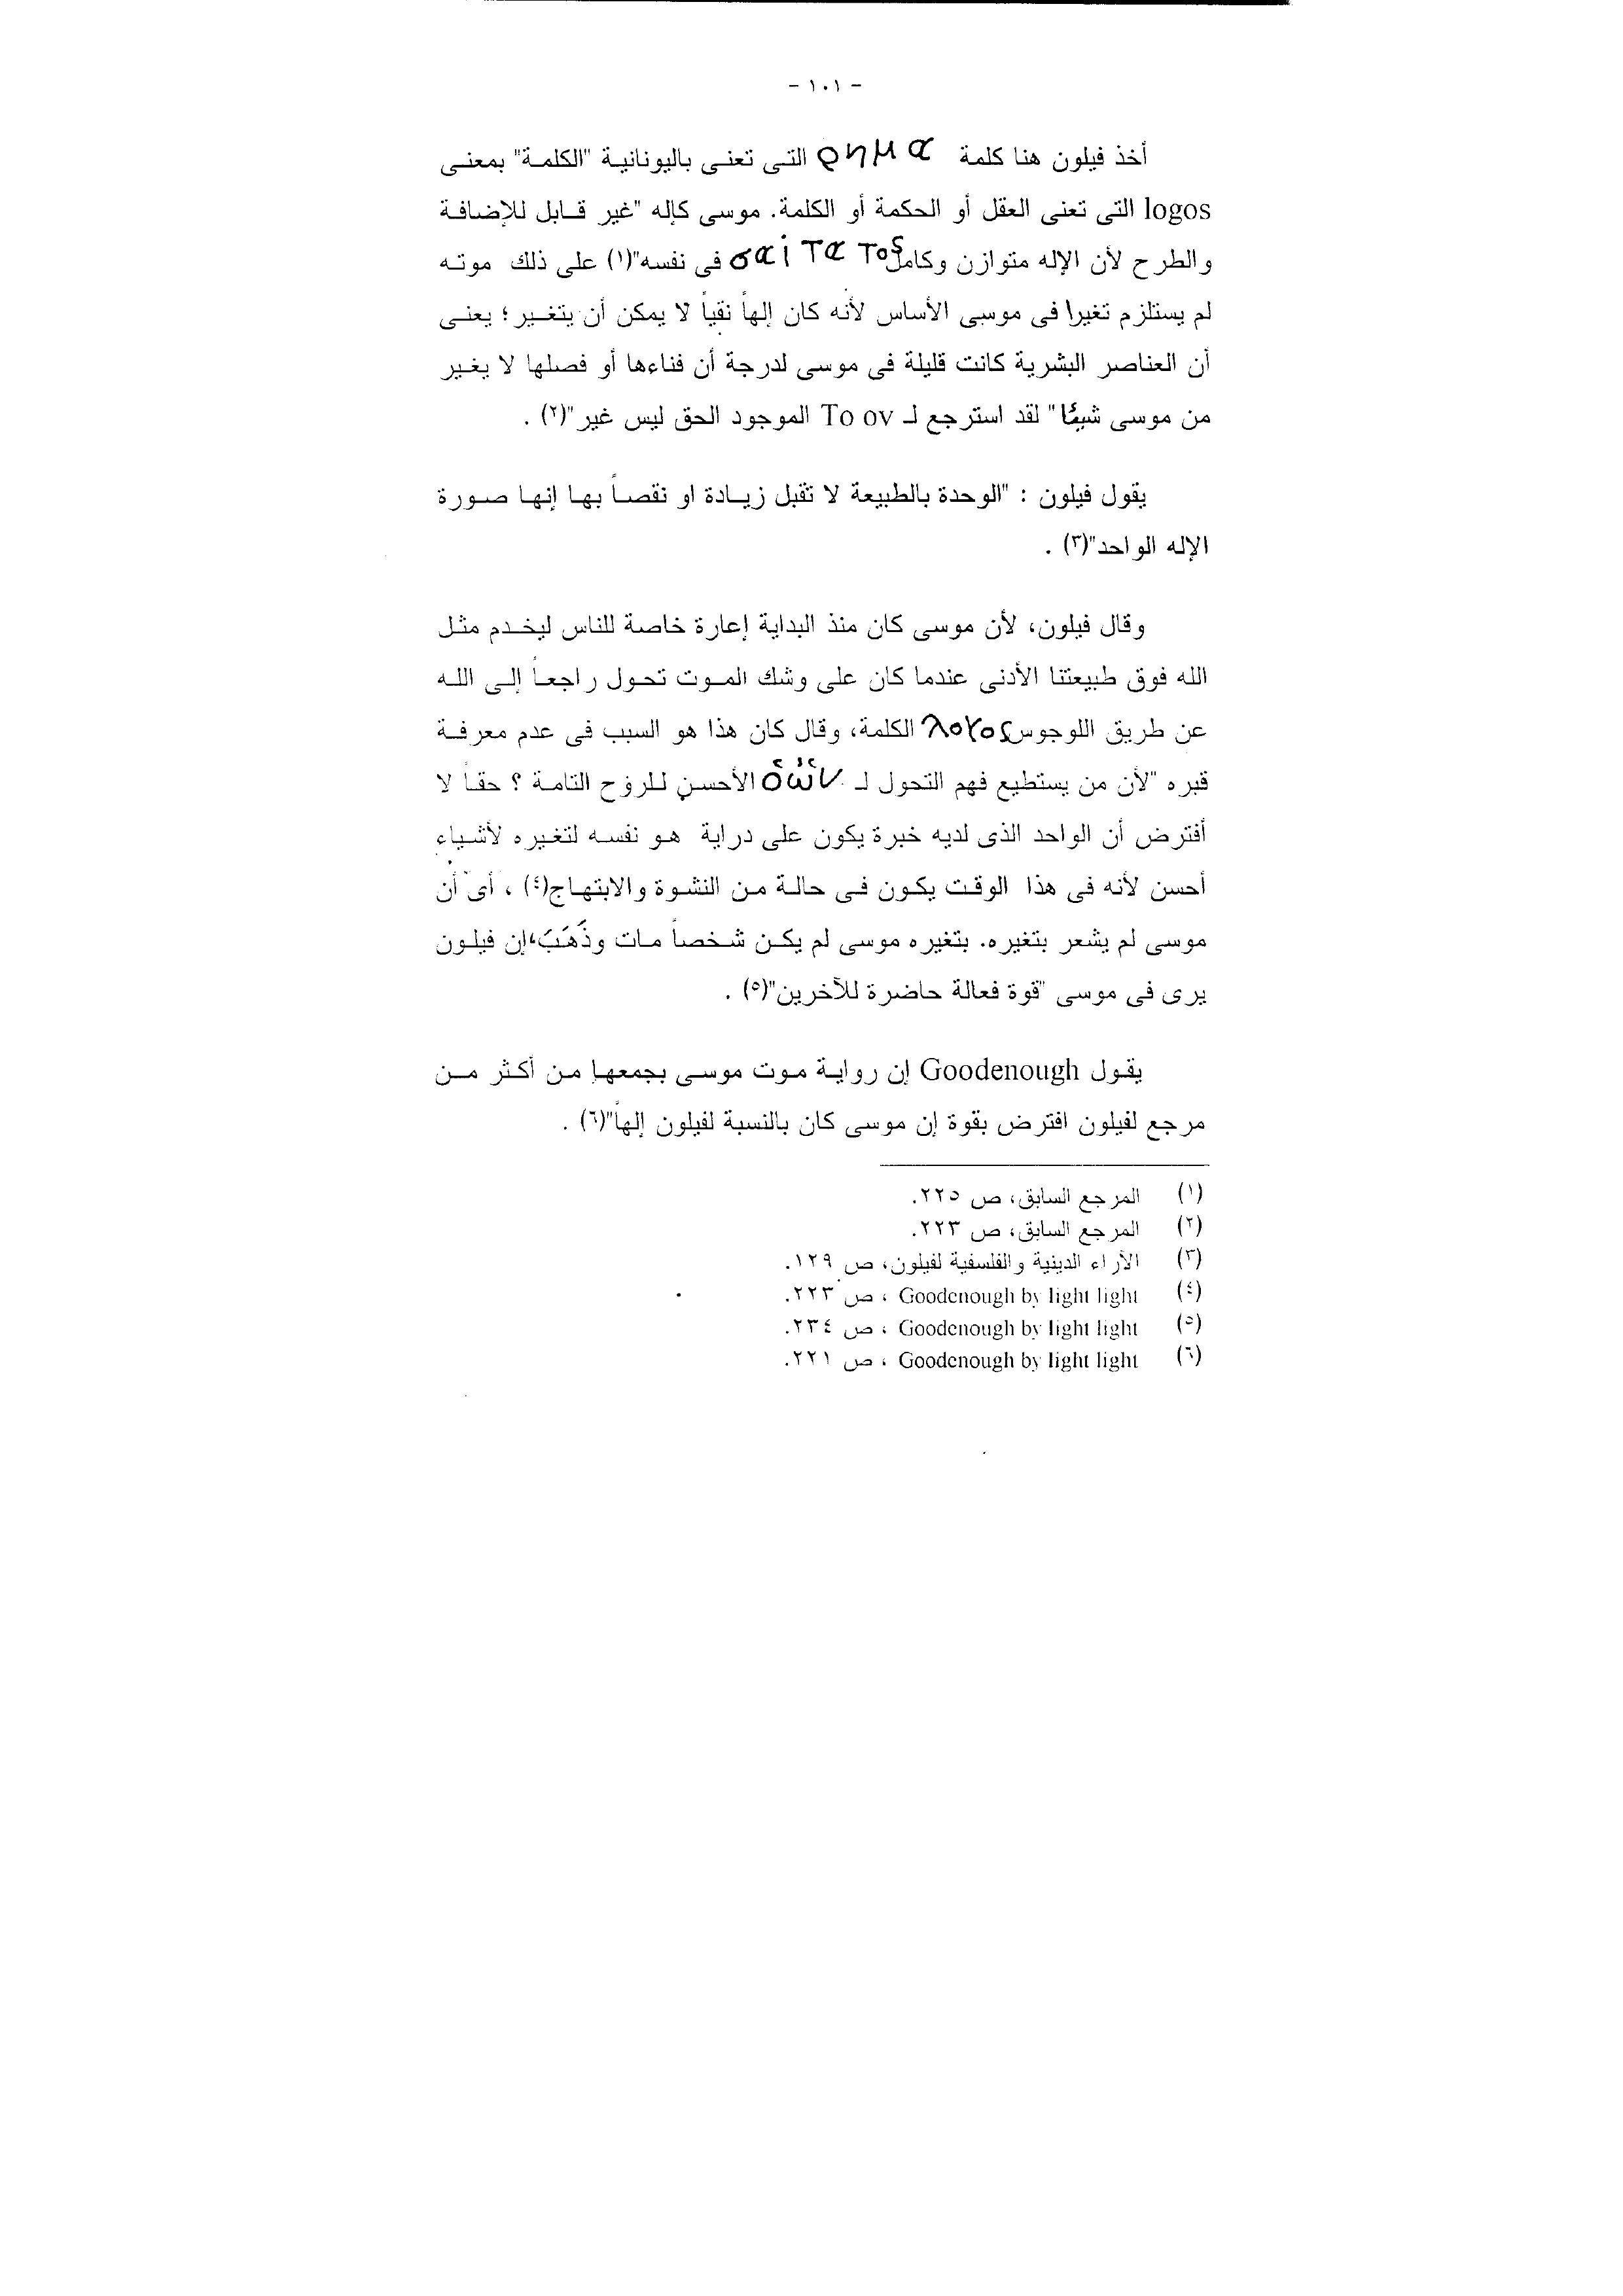 - ١٠١ -
أخذ فيلون هنا كلمة ρημα التى تعنى باليونانية "الكلمة" بمعنى
logos التى تعنى العقل أو الحكمة أو الكلمة. موسى كإله "غير قابل للإضافة
والطرح لأن الإله متوازن وكامل σαιτατος فى نفسه"(١) على ذلك موته
لم يستلزم تغيرا فى موسى الأساس لأنه كان إلهاً نقياً لا يمكن أن يتغير ؛ يعنى
أن العناصر البشرية كانت قليلة فى موسى لدرجة أن فناءها أو فصلها لا يغير
من موسى شيئا" لقد استرجع لـ To ov الموجود الحق ليس غير"(٢) .
يقول فيلون : "الوحدة بالطبيعة لا تقبل زيادة او نقصاً بها إنها صورة
الإله الواحد"(٣) .
وقال فيلون، لأن موسى كان منذ البداية إعارة خاصة للناس ليخدم مثل
الله فوق طبيعتنا الأدنى عندما كان على وشك الموت تحول راجعاً إلى الله
عن طريق اللوجوس λογος الكلمة، وقال كان هذا هو السبب فى عدم معرفة
قبره "لأن من يستطيع فهم التحول لـ الأحسن للروح التامة ؟ حقاً لا
أفترض أن الواحد الذى لديه خبرة يكون على دراية هو نفسه لتغيره لأشياء
أحسن لأنه فى هذا الوقت يكون فى حالة من النشوة والابتهاج(٤) ، أى أن
موسى لم يشعر بتغيره. بتغيره موسى لم يكن شخصاً مات وذَهَبَ، إن فيلون
يرى فى موسى "قوة فعالة حاضرة للآخرين"(٥) .
يقول Goodenough إن رواية موت موسى بجمعها من أكثر من
مرجع لفيلون افترض بقوة إن موسى كان بالنسبة لفيلون إلهاً"(٦) .
(١) المرجع السابق، ص ٢٢٥.
(٢) المرجع السابق، ص ٢٢٣.
(٣) الآراء الدينية والفلسفية لفيلون، ص ١٢٩.
(٤) Goodenough by light light ، ص ٢٢٣.
(٥) Goodenough by light light ، ص ٢٣٤.
(٦) Goodenough by light light ، ص ٢٢١.